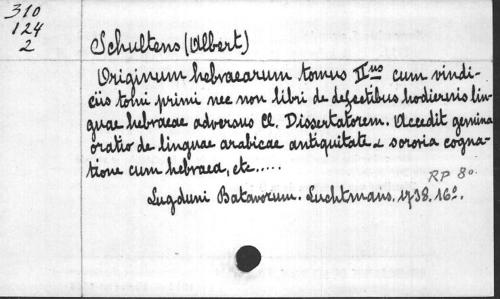 310
124
2
Schultens (Albert)
Originum hebraearum tomus IIus cum vindi-
ciis tomi primi nec non libri de defectibus hodiernis lin
guae hebraeae adversus Cl. Dissertatorem. Accedit gemina
oratio de linguae arabicae antiquitate & sororia cogna-
tione cum hebraea, etc.....
RP 80.
Lugduni Batavorum. Luchtmans. 1738. 16°.